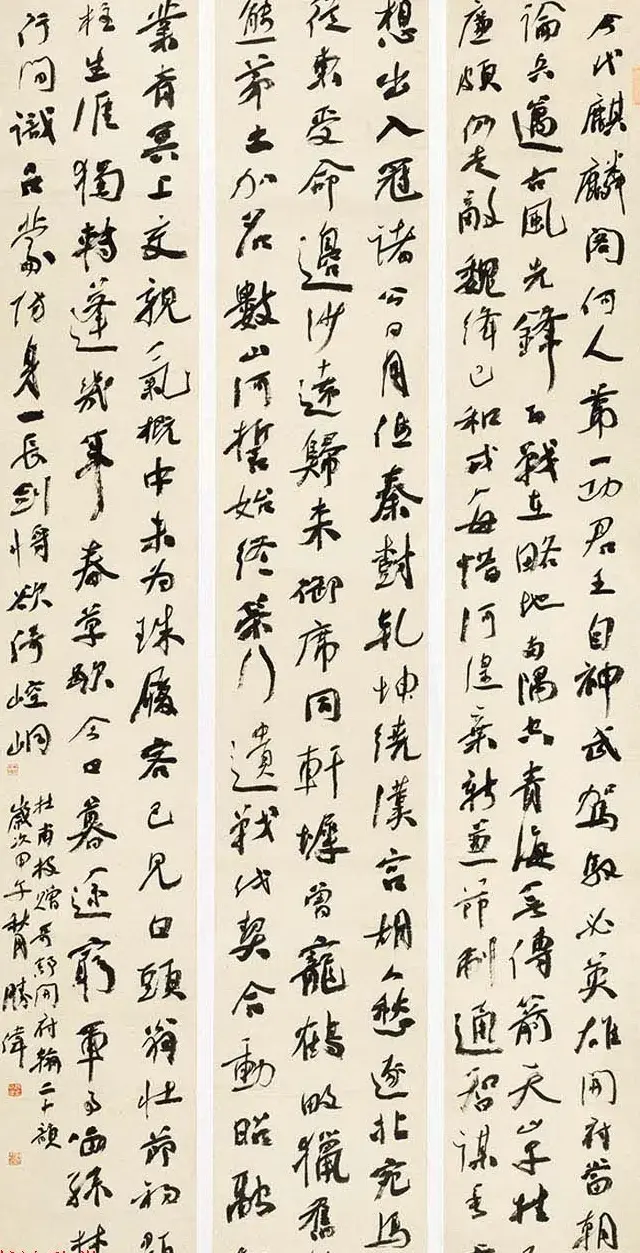 今代麒麟閣何人第一功君王自神武駕馭必英雄開府當朝
論兵邁古風先鋒百戰在略地兩隅空青海無傳箭天山早挂
廉頗仍走敵魏絳已和戎每惜河湟棄新兼節制通智謀垂
想出入冠諸公日月低秦樹乾坤繞漢宮胡人愁逐北宛馬
從東受命邊沙遠歸來御席同軒墀曾寵鶴畋獵舊
熊茅土加名數山河誓始終策行遺戰伐契合動昭融
業青冥上交親氣概中未為珠履客已見白頭翁壯節初題
柱生涯獨轉蓬幾年春草歇今日暮途窮軍事留孫楚
行間識呂蒙防身一長劍將欲倚崆峒
杜甫投贈哥舒開府翰二十韻
歲次甲午秋月勝偉